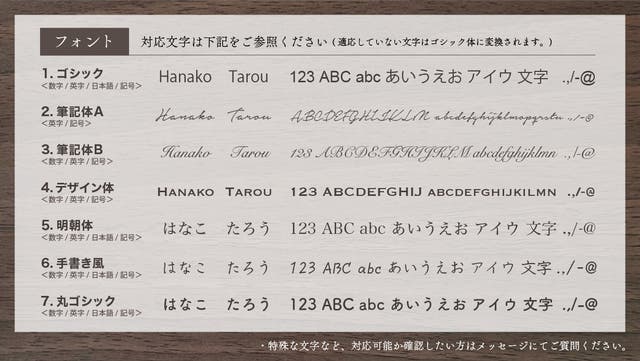 フォント　対応文字は下記をご参照ください（適応していない文字はゴシック体に変換されます。）
1. ゴシック　Hanako　Tarou　123 ABC abc あいうえお アイウ 文字　.,/-@
＜数字 / 英字 / 日本語 / 記号＞
2. 筆記体A　Hanako　Tarou　ABCDEFGHIJKLMN abcdefghijklmopqrstu .,/-@
＜英字 / 記号＞
3. 筆記体B　Hanako　Tarou　123 ABCDEFGHIJKLM abcdefghijklmn .,/-@
＜数字 / 英字 / 記号＞
4. デザイン体　HANAKO　TAROU　123 ABCDEFGHIJ ABCDEFGHIJKILMN　.,/-@
＜数字 / 英字 / 記号＞
5. 明朝体　はなこ　たろう　123 ABC abc あいうえお アイウ 文字 .,/-@
＜数字 / 英字 / 日本語 / 記号＞
6. 手書き風　はなこ　たろう　123 ABC abc あいうえお アイウ 文字 .,/-@
＜数字 / 英字 / 日本語 / 記号＞
7. 丸ゴシック　はなこ　たろう　123 ABC abc あいうえお アイウ 文字 .,/-@
＜数字 / 英字 / 日本語 / 記号＞
・特殊な文字など、対応可能か確認したい方はメッセージにてご質問ください。